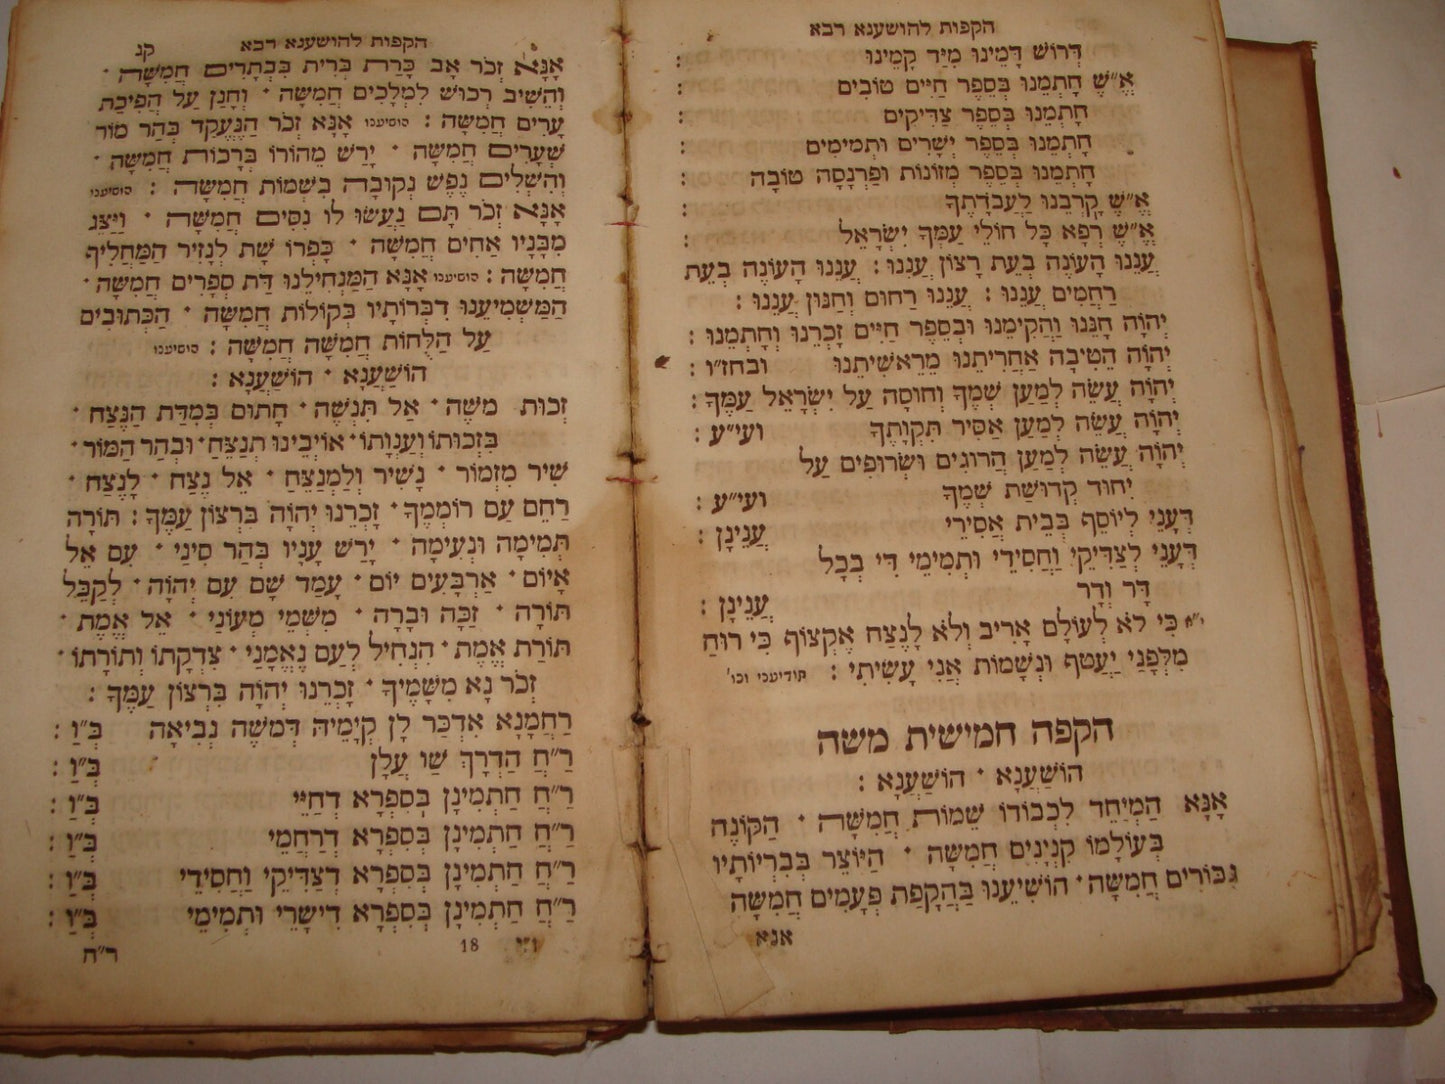 הקפות להושענא רבא
דְּרוֹשׁ דָּמֵינוּ מִיַּד קָמֵינוּ :
אֶ״שֶׁ חָתְמֵנוּ בְּסֵפֶר חַיִּים טוֹבִים :
חָתְמֵנוּ בְּסֵפֶר צַדִּיקִים :
חָתְמֵנוּ בְּסֵפֶר יְשָׁרִים וּתְמִימִים :
חָתְמֵנוּ בְּסֵפֶר מְזוֹנוֹת וּפַרְנָסָה טוֹבָה :
אֶ״שֶׁ קָרְבֵנוּ לַעֲבוֹדָתֶךָ :
אֶ״שֶׁ רְפָא כָּל חוֹלֵי עַמְּךָ יִשְׂרָאֵל :
עֲנֵנוּ הָעוֹנֶה בְּעֵת רָצוֹן עֲנֵנוּ : עֲנֵנוּ הָעוֹנֶה בְּעֵת
רַחֲמִים עֲנֵנוּ : עֲנֵנוּ רַחוּם וְחַנּוּן עֲנֵנוּ :
יְהֹוָה חָנֵּנוּ וַהֲקִימֵנוּ וּבְסֵפֶר חַיִּים זָכְרֵנוּ וְחָתְמֵנוּ :
יְהֹוָה הֵטִיבָה אַחֲרִיתֵנוּ מֵרֵאשִׁיתֵנוּ ובחז״ו :
יְהֹוָה עֲשֵׂה לְמַעַן שְׁמֶךָ וְחוּסָה עַל יִשְׂרָאֵל עַמֶּךָ :
יְהֹוָה עֲשֵׂה לְמַעַן אַסִּיר תִּקְוָתֶךָ ועי״ע :
יְהֹוָה עֲשֵׂה לְמַעַן הֲרוּגִים וּשְׂרוּפִים עַל
יִחוּד קְדוּשַּׁת שְׁמֶךָ ועי״ע :
דְּעָנֵי לְיוֹסֵף בְּבֵית אֲסִירֵי עֲנֵינָן :
דְּעָנֵי לְצַדִּיקֵי וַחֲסִידֵי וּתְמִימֵי דִּי בְכָל
דָּר וְדָר עֲנֵינָן :
י״א כִּי לֹא לְעוֹלָם אָרִיב וְלֹא לָנֶצַח אֶקְצוֹף כִּי רוּחַ
מִלְּפָנַי יַעֲטוֹף וּנְשָׁמוֹת אֲנִי עָשִׂיתִי : תודיעני וכו'
הקפה חמישית משה
הוֹשַׁעֲנָא • הוֹשַׁעֲנָא :
אָנָּא הַמְיַחֵד לִכְבוֹדוֹ שֵׁמוֹת חֲמִשָּׁה • הַקּוֹנֶה
בְּעוֹלָמוֹ קִנְיָנִים חֲמִשָּׁה • הַיּוֹצֵר בִּבְרִיּוֹתָיו
גִּבּוֹרִים חֲמִשָּׁה • הוֹשִׁיעֵנוּ בַּהֲקָפַת פְּעָמִים חֲמִשָּׁה
אנא
הקפות להושענא רבא קנ
אָנָּא זְכֹר אָב כָּרַת בְּרִית בִּבְתָרִים חֲמִשָּׁה •
וְהֵשִׁיב רְכוּשׁ לִמְלָכִים חֲמִשָּׁה • וְחָנַן עַל הֲפִיכַת
עָרִים חֲמִשָּׁה : הושיענו אָנָּא זְכֹר הַנֶּעֱקַד בְּהַר מוֹר
שְׁעָרִים חֲמִשָּׁה • יָרַשׁ מֵהוֹרוֹ בְּרָכוֹת חֲמִשָּׁה •
וְהִשְׁלִים נֶפֶשׁ נְקוּבָה בְּשֵׁמוֹת חֲמִשָּׁה : הושיענו
אָנָּא זְכֹר תָּם נַעֲשׂוּ לוֹ נִסִּים חֲמִשָּׁה • וַיַּצֵּג
מִבָּנָיו אַחִים חֲמִשָּׁה • כָּפְרוֹ שָׁת לְנָזִיר הַמַּחֲלִיף
חֲמִשָּׁה : הושיענו אָנָּא הַמַּנְחִילֵנוּ דָּת סְפָרִים חֲמִשָּׁה •
הַמַּשְׁמִיעֵנוּ דִּבְּרוֹתָיו בְּקוֹלוֹת חֲמִשָּׁה • הַכְּתוּבִים
עַל הַלֻּחוֹת חֲמִשָּׁה חֲמִשָּׁה : הושיענו
הוֹשַׁעֲנָא • הוֹשַׁעֲנָא :
זְכוּת משֶׁה • אַל תִּנְשֶׁה • חָתוּם בְּמִדַּת הַנֶּצַח •
בִּזְכוּתוֹ וְעַנְוָתוֹ • אוֹיְבֵינוּ תְנַצֵּחַ • וּבְהַר הַמּוֹר •
שִׁיר מִזְמוֹר • נָשִׁיר וְלַמְנַצֵּחַ • אֵל נֶצַח • לָנֶצַח •
רַחֵם עַם רוֹמְמֶךָ • זָכְרֵנוּ יְהֹוָה בִּרְצוֹן עַמֶּךָ : תּוֹרָה
תְּמִימָה וּנְעִימָה • יָרַשׁ עָנָיו בְּהַר סִינַי • עִם אֵל
אָיוֹם • אַרְבָּעִים יוֹם • עָמַד שָׁם עִם יְהֹוָה • לְקַבֵּל
תּוֹרָה • זַכָּה וּבָרָה • מִשְּׁמֵי מְעוֹנַי • אֵל אֱמֶת •
תּוֹרַת אֱמֶת • הִנְחִיל לְעַם נֶאֱמָנַי • צִדְקָתוֹ וְתוֹרָתוֹ •
זְכֹר נָא מִשָּׁמֶיךָ • זָכְרֵנוּ יְהֹוָה בִּרְצוֹן עַמֶּךָ :
רַחֲמָנָא אִדְכַּר לָן קְיָמֵיהּ דְּמשֶׁה נְבִיאָה בְּ״וַ :
רַ״חֲ הַדְרָךְ שַׁוִּ עֲלָן בְּ״וַ :
רַ״חֲ חַתְמִינָן בְּסִפְרָא דְחַיֵּי בְּ״וַ :
רַ״חֲ חַתְמִינָן בְּסִפְרָא דְרַחֲמֵי בְּ״וַ :
רַ״חֲ חַתְמִינָן בְּסִפְרָא דְצַדִּיקֵי וַחֲסִידֵי בְּ״וַ :
רַ״חֲ חַתְמִינָן בְּסִפְרָא דִישָׁרֵי וּתְמִימֵי בְּ״וַ :
18 ר״ח